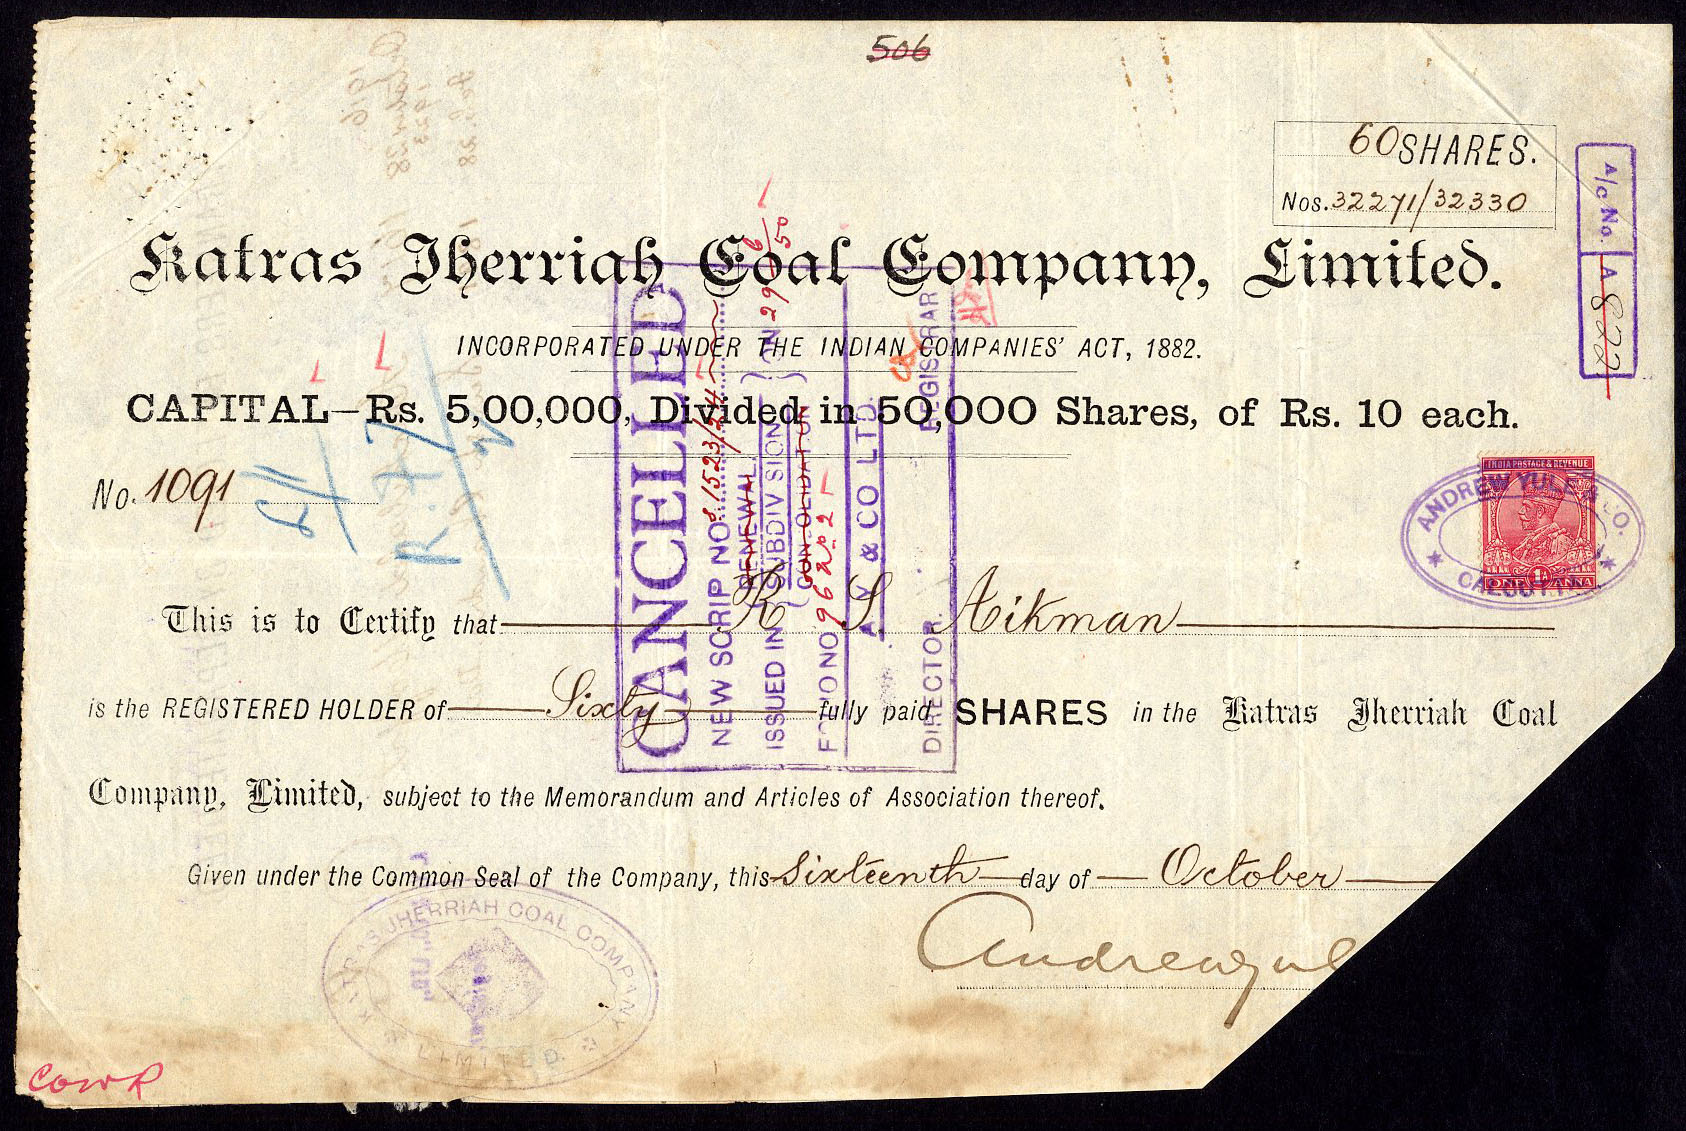 506
60 SHARES.
Nos. 32271/32330
A/c No. A 822
Katras Jherriah Coal Company, Limited.
INCORPORATED UNDER THE INDIAN COMPANIES' ACT, 1882.
CAPITAL—Rs. 5,00,000, Divided in 50,000 Shares, of Rs. 10 each.
No. 1091
INDIA POSTAGE & REVENUE
ONE 1A ANNA
ANDREW YULE & CO.
CALCUTTA
This is to Certify that R S Aikman
is the REGISTERED HOLDER of Sixty fully paid SHARES in the Katras Jherriah Coal
Company, Limited, subject to the Memorandum and Articles of Association thereof.
Given under the Common Seal of the Company, this Sixteenth day of October
Andrew Yul
KATRAS JHERRIAH COAL COMPANY
LIMITED.
CANCELLED
NEW SCRIP NOS 1523/24
RENEWAL
ISSUED IN SUBDIVISION ON 29/6/50
CONSOLIDATION
FOLIO NO 962
A. Y & CO LTD.
DIRECTOR. REGISTRAR
COWR